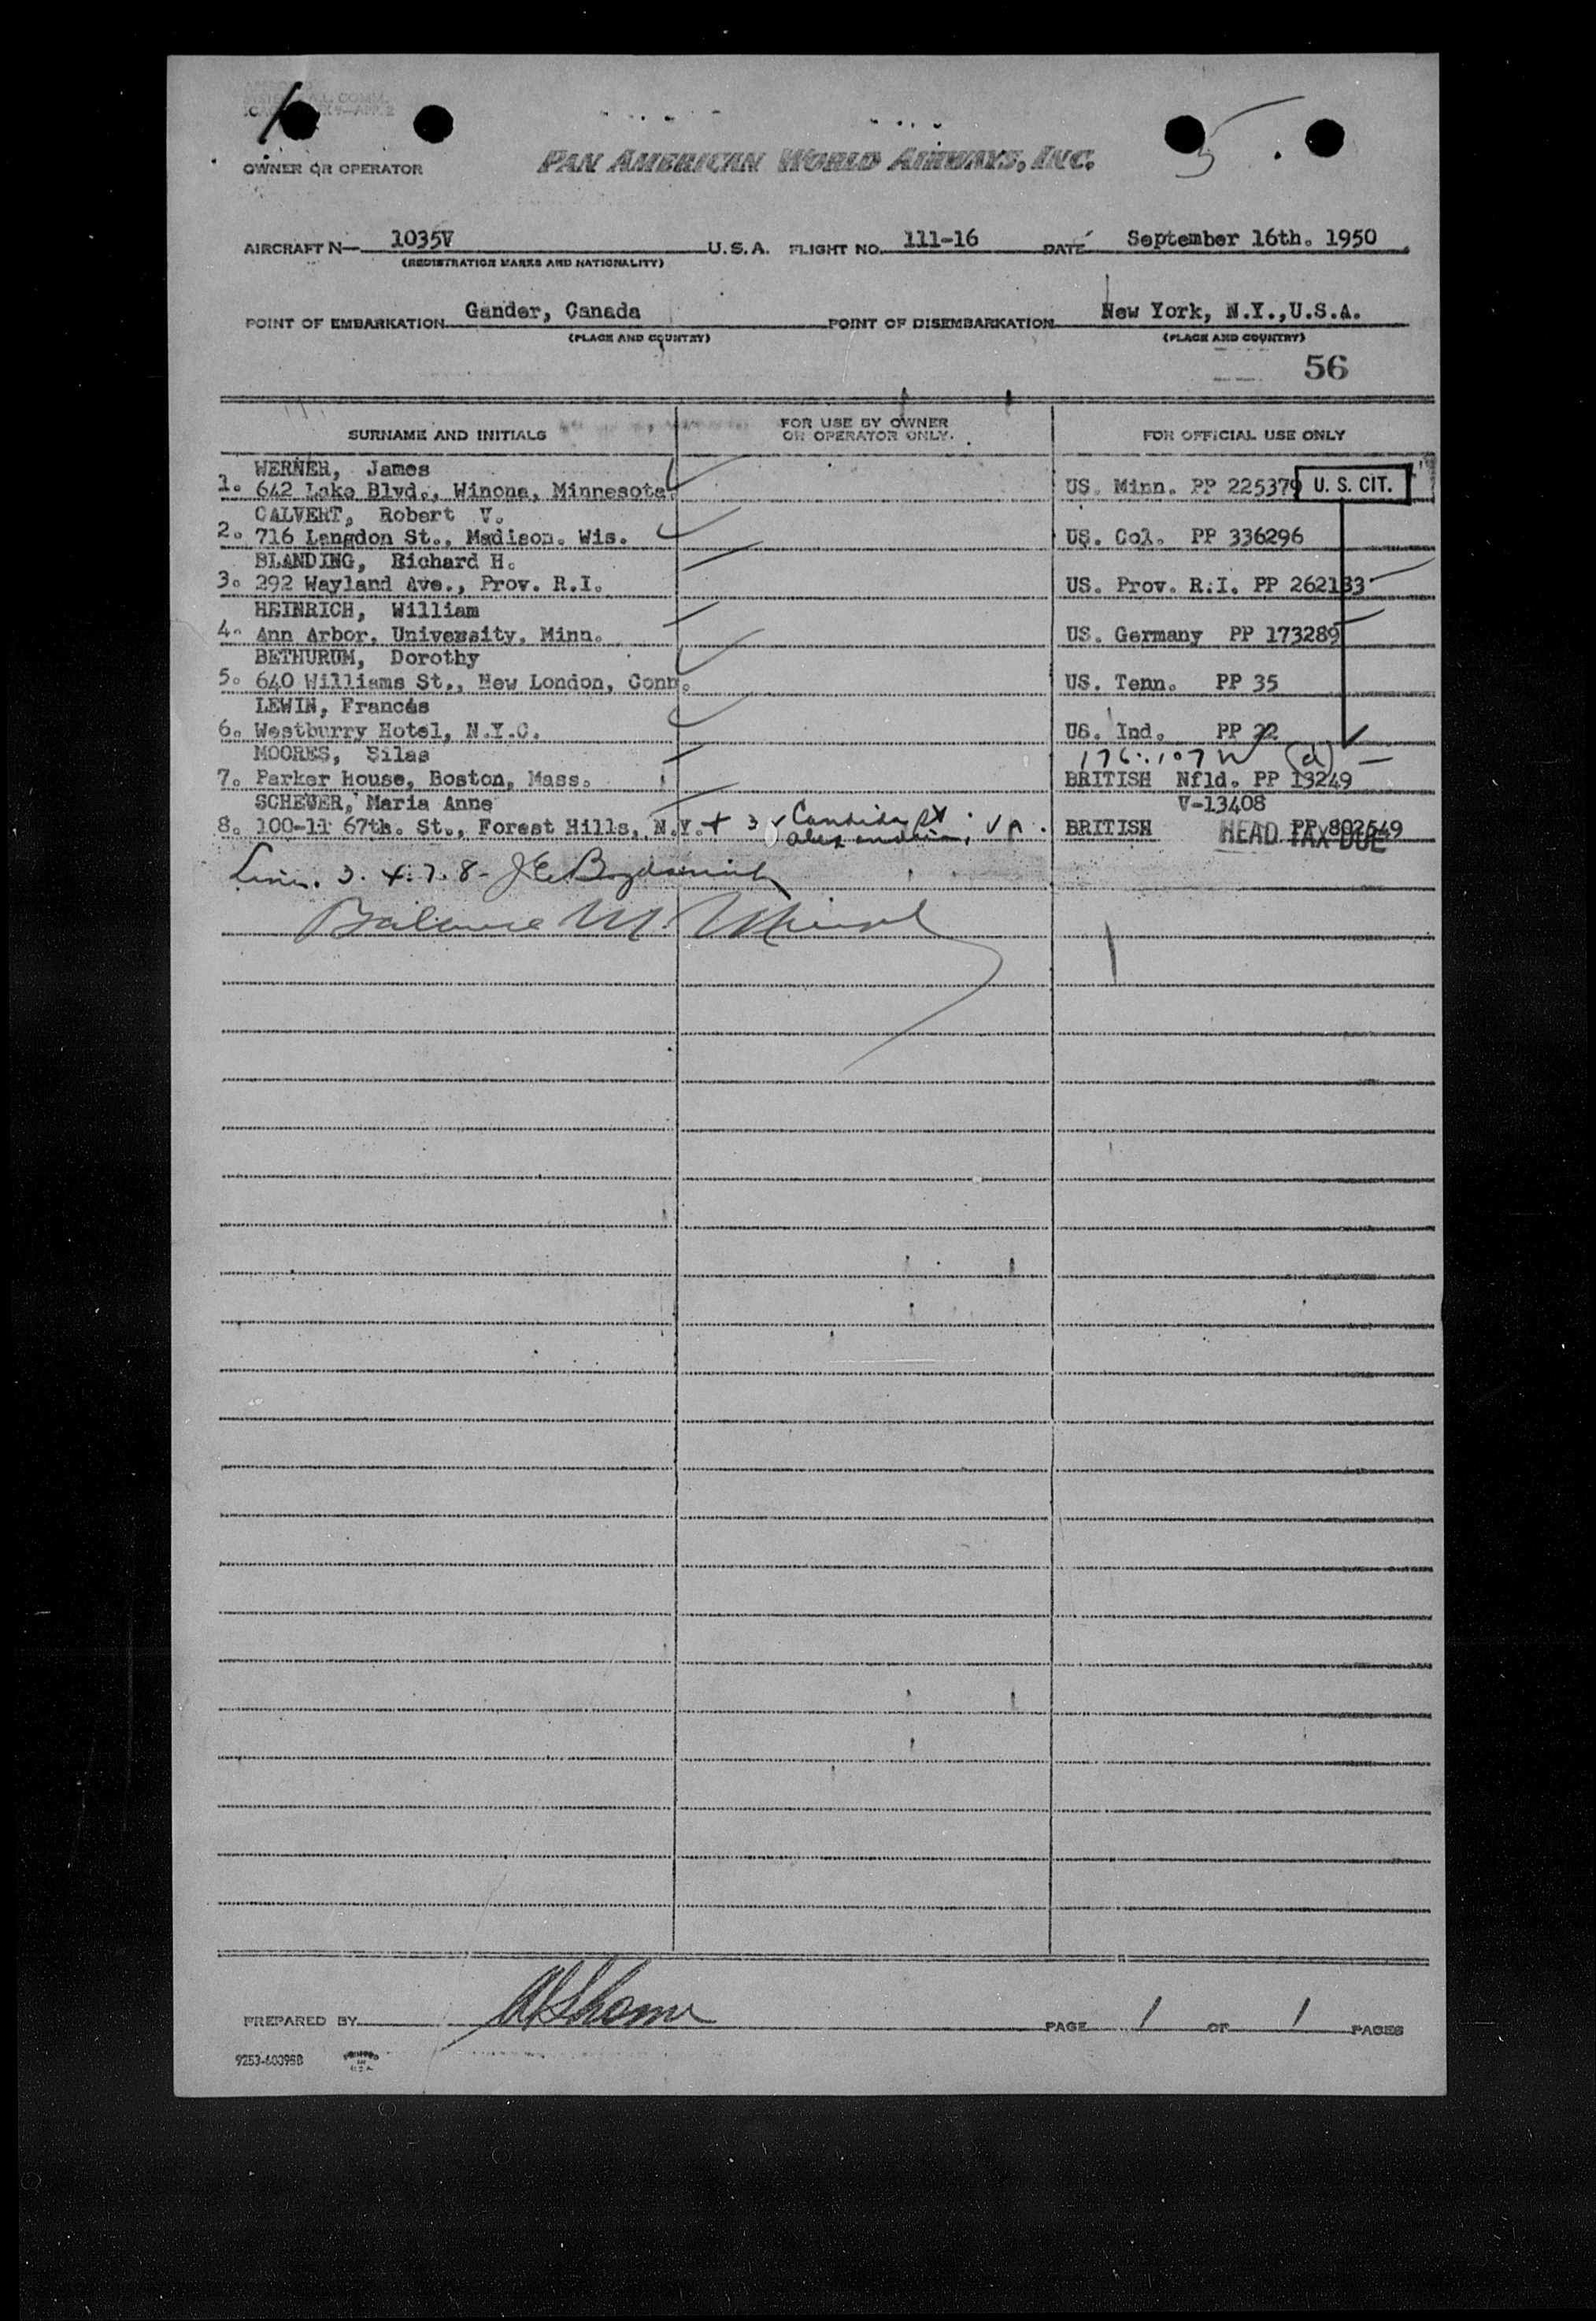 OWNER OR OPERATOR PAN AMERICAN WORLD AIRWAYS, INC. 5
AIRCRAFT N— 1035V U.S.A. FLIGHT NO. 111-16 DATE September 16th. 1950
(REGISTRATION MARKS AND NATIONALITY)
POINT OF EMBARKATION Gander, Canada POINT OF DISEMBARKATION New York, N.Y.,U.S.A.
(PLACE AND COUNTRY) (PLACE AND COUNTRY)
56
SURNAME AND INITIALS FOR USE BY OWNER OR OPERATOR ONLY. FOR OFFICIAL USE ONLY
WERNER, James
1. 642 Lake Blvd., Winona, Minnesota. US. Minn. PP 225379 U. S. CIT.
CALVERT, Robert V.
2. 716 Langdon St., Madison. Wis. US. Col. PP 336296
BLANDING, Richard H.
3. 292 Wayland Ave., Prov. R.I. US. Prov. R.I. PP 262183
HEINRICH, William
4. Ann Arbor, University, Minn. US. Germany PP 173289
BETHURUM, Dorothy
5. 640 Williams St., New London, Conn. US. Tenn. PP 35
LEWIN, Francés
6. Westburry Hotel, N.Y.C. US. Ind. PP 22
MOORES, Silas 176:107 W (a)
7. Parker House, Boston, Mass. BRITISH Nfld. PP 13249
SCHEUER, Maria Anne V-13408
8. 100-11 67th. St., Forest Hills, N.Y. + 3 Alexandria, VA. BRITISH PP 802649
HEAD TAX DUE
Lines. 3. 4. 7. 8-
Balance M.
PREPARED BY PAGE 1 OF 1 PAGES
9253-60398B PRINTED IN U.S.A.